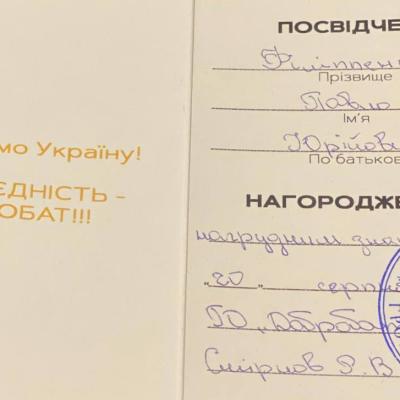 мо Україну!
ЄДНІСТЬ -
ОБАТ!!!
ПОСВІДЧЕ
Філіппен
Прізвище
Павло
Ім'я
Юрійови
По батьков
НАГОРОДЖЕ
нагрудним знак
„20„ серпн
ГО „Добробат
Смірнов Р.В